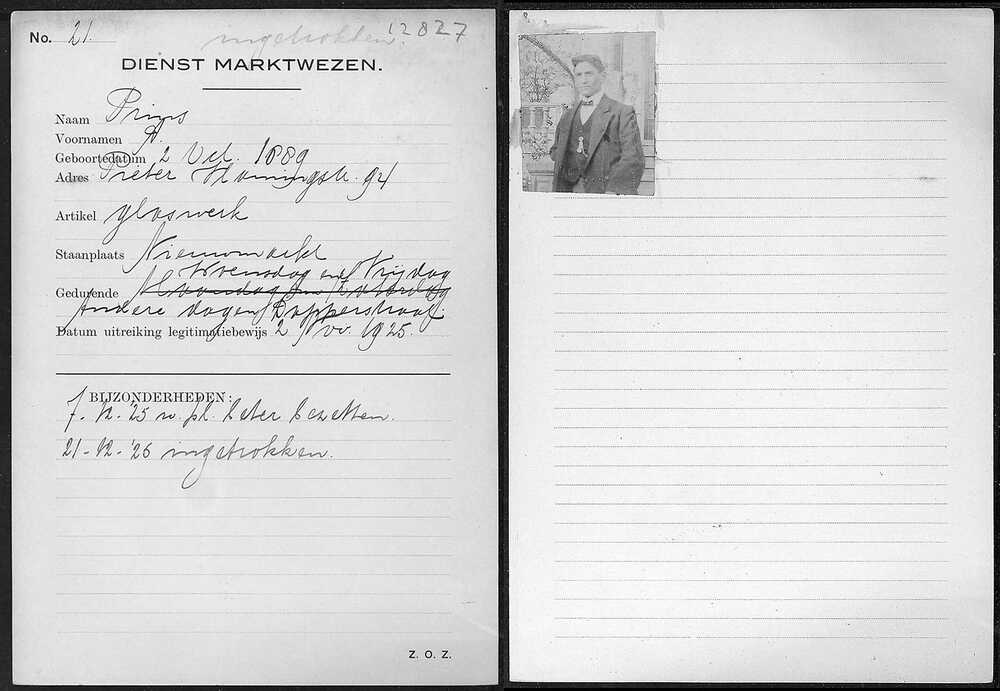 No. 21. ingetrokken. 12827
DIENST MARKTWEZEN.
Naam Prins
Voornamen A.
Geboortedatum 2 Oct. 1889
Adres Pieter 94
Artikel glaswerk
Staanplaats Nieuwmarkt
Woensdag en Vrijdag
Gedurende Maandag en Zaterdag
Andere dagen Dapperstraat.
Datum uitreiking legitimatiebewijs 2 Nov. 1925.
BIJZONDERHEDEN:
7-12-'25 w. pl. beter bezetten.
21-12-'25 ingetrokken.
Z. O. Z.